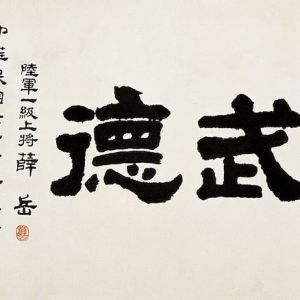 武德
陸軍一級上將薛岳
中華民國